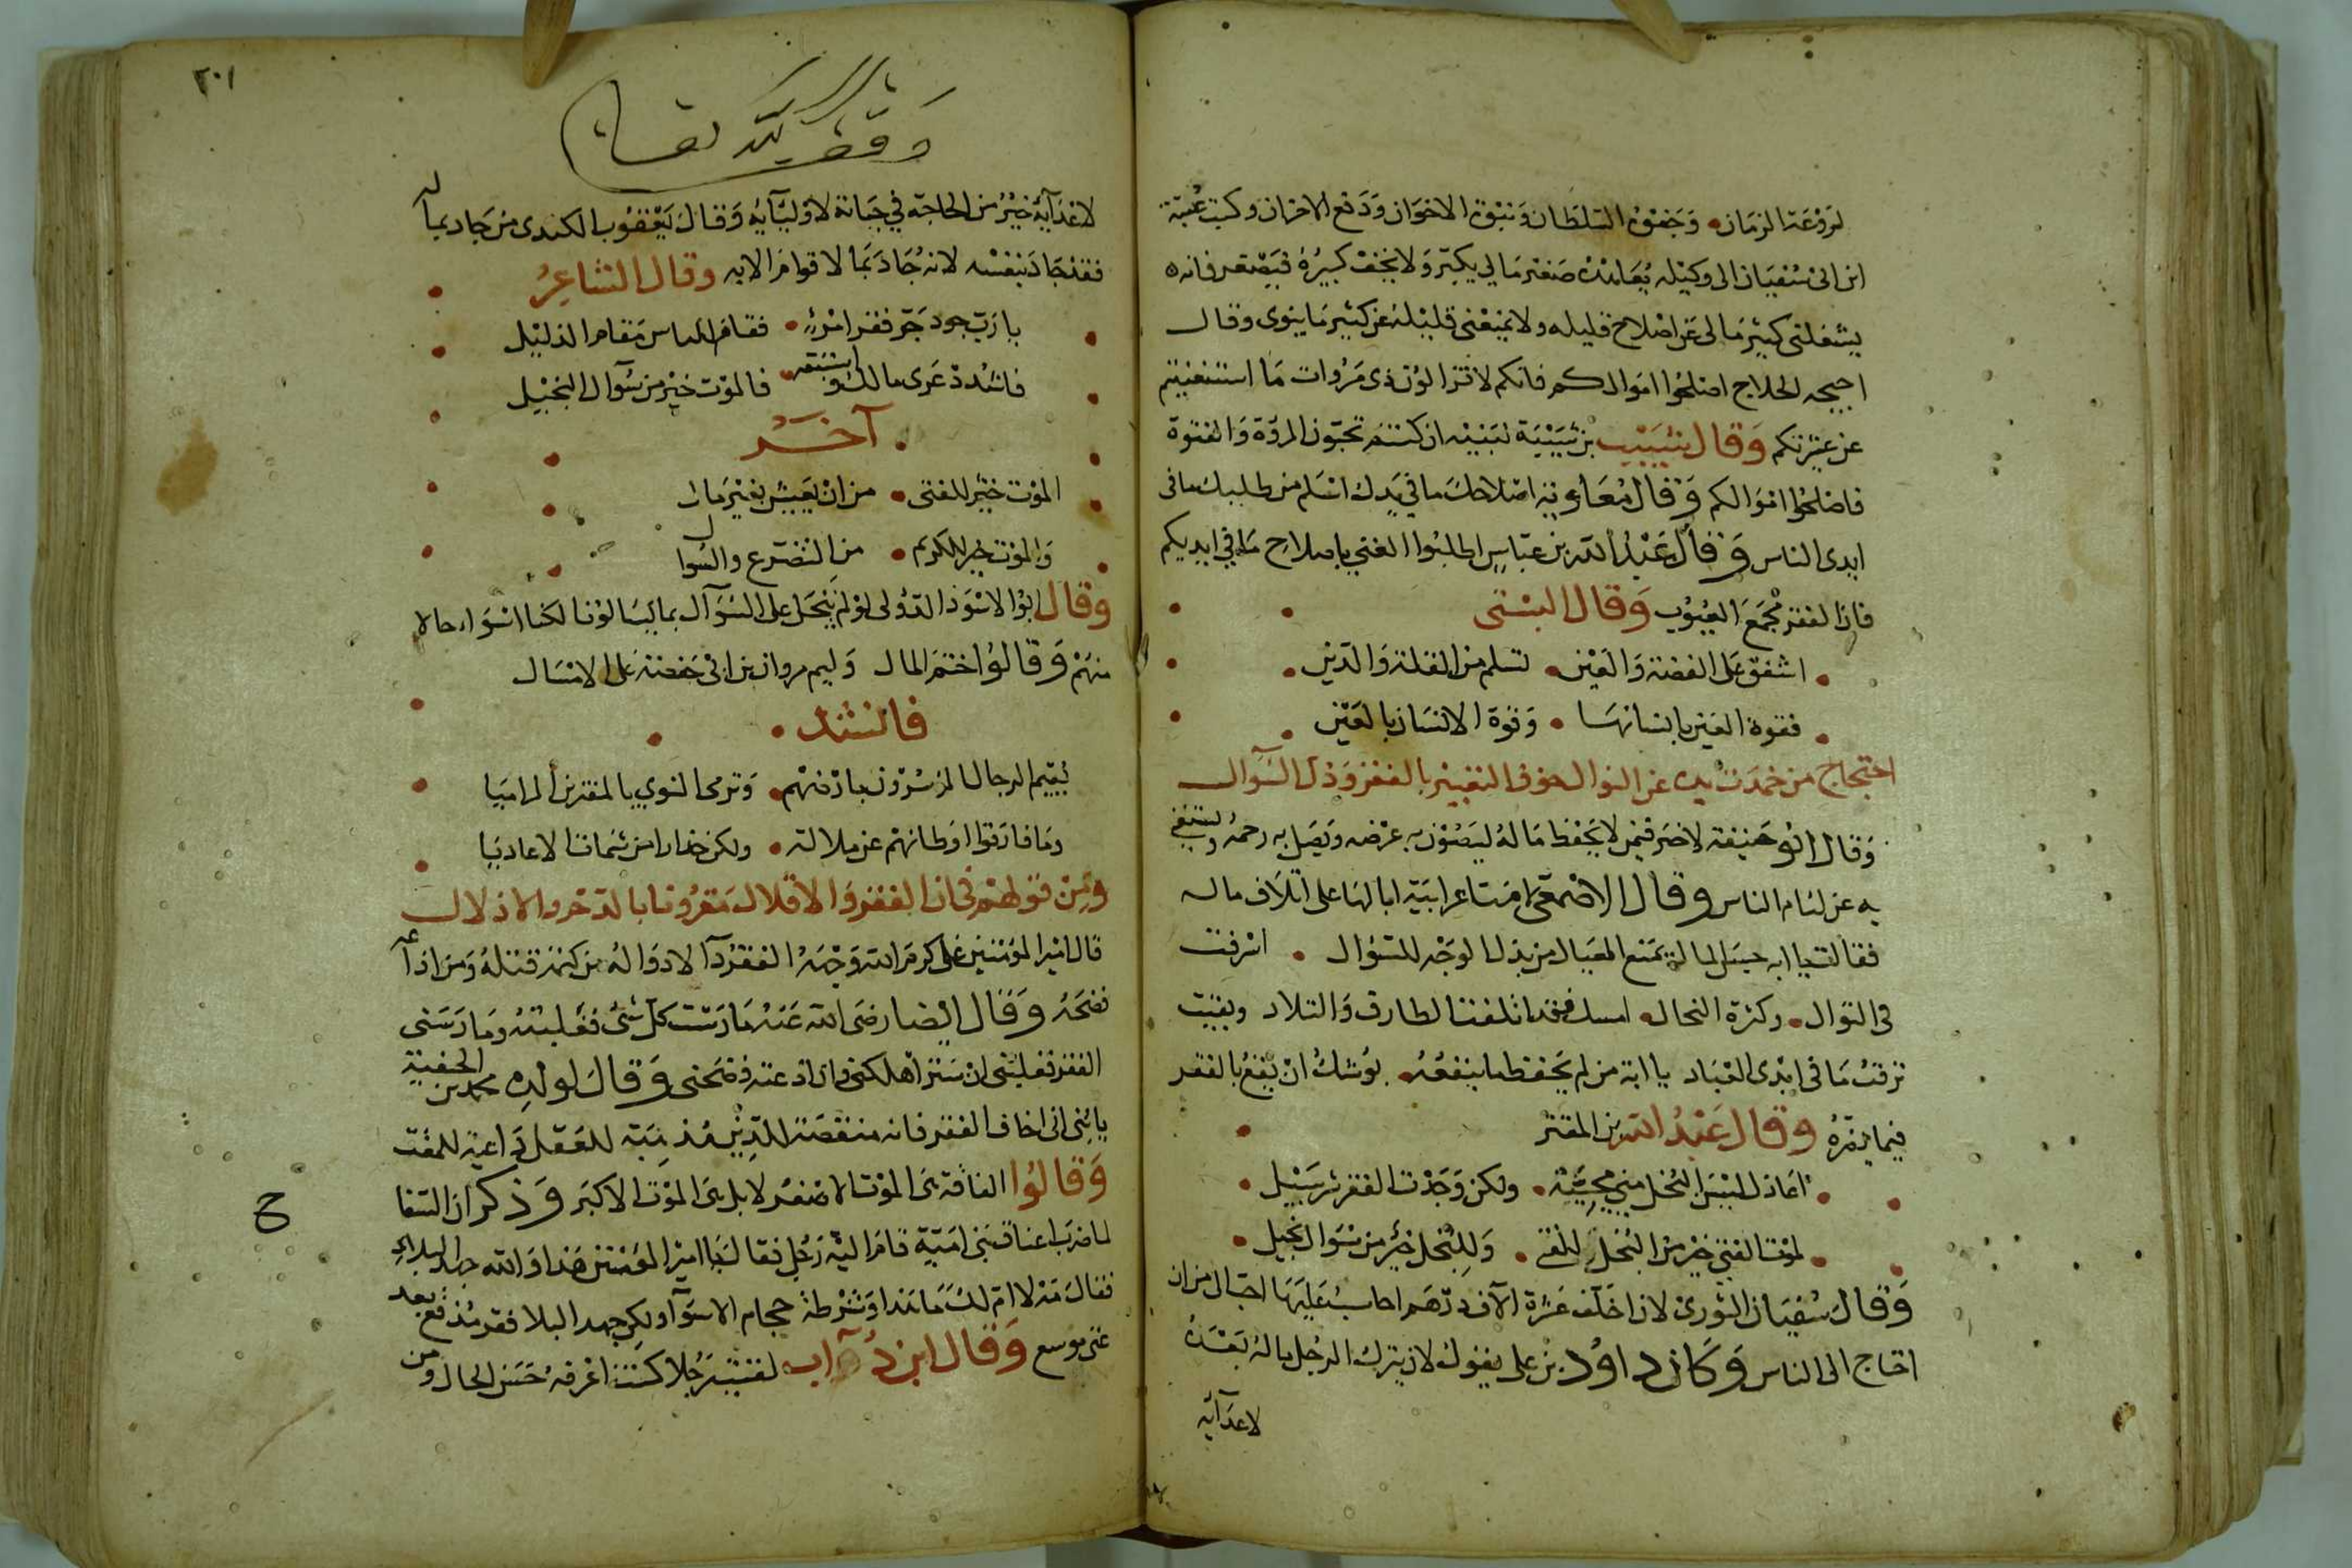 لروعة الزمان وجفوة السلطان ونبوة الاخوان ودفع الاحزان وكتب عتبة
ابن ابى سفيان الى وكيله تعاهد صغير مالى يكبر ولا تجف كبيره فيصغر فانه
يشغلنى كثير مالى عن اصلاح قليله ولا يمنعنى قليله عن كثير ما ينوى وقال
احيحه الجلاح اصلحوا اموالكم فانكم لا تزالون ذى مروات ما استغنيتم
عن عشيرتكم وقال شبيب بن شيبة لبنيه ان كنتم تحبون المروة والفتوة
فاصلحوا اموالكم وقال معاوية اصلاحك ما فى يدك اسلم من طلبك ما فى
ايدى الناس وقال عبد الله بن عباس اطلبوا الغنى باصلاح ما فى ايديكم
فان الفقر مجمع العيوب وقال البستى
اشفق على الفضة والعين لتسلم من القلة والدين
فقوة العين بانسانها وقوة الانسان بالعين
احتجاج من خمدت يده عن النوال خوف التغيير بالفقر وذل السوال
وقال ابو حنيفة لا خير فيمن لا يحفظ ماله ليصون به عرضه ويصل به رحمه ويستغنى
به عن لئام الناس وقال الاصمعى اعرابية ابالها على اتلاف ماله
فقالت يا ابه حبس المال يمنع العيال من بذل الوجه للسؤال اسرفت
فى النوال وكثرة النحال امسك فقد اتلفت الطارف والتلاد وبقيت
ترقب ما فى ايدى العباد يا ابة من لم يحفظ ما ينفعه يوشك ان يقع بالفقر
فيما يضره وقال عبد الله بن المعتز
اعاذل ليس البخل منى سجية ولكن وجدت الفقر شر سبيل
لموت الفتى خير من البخل للفتى وللبخل خير من سوال بخيل
وقال سفيان الثورى لان اخلف عشرة الآف درهم احاسب عليها احب الى من ان
احتاج الى الناس وكان داود بن على يقول لان يترك الرجل ماله بعده
لاعدآئه
٢٠١
وقف لله تعالى
لاعدآئه خير من الحاجة فى حياته لاوليآئه وقال يعقوب الكندى من جاد بماله
فقد جاد بنفسه لانه جاد بما لا قوام الا به وقال الشاعر
يا رب جود جر فقر امرئ فقام للناس مقام الذليل
فاشدد عرى مالك واستبقه فالموت خير من سوآل البخيل
آخر
الموت خير للفتى من ان يعيش بغير مال
والموت خير للكريم من التضرع والسوال
وقال ابو الاسود الدؤلى لو لم نبخل على السوآل بما يسالونا لكنا اسواء حالا
منهم وقالوا اختم المال وليم مروان بن ابى حفصة على الامساك
فانشد
يقيم الرجال الموسرون بارضهم وترمى النوى بالمقترين المراميا
وما فارقوا اوطانهم عن ملالة ولكن حذارا من شمات الاعاديا
ومن قولهم فى ان الفقر والاقلال مقرونا بالتدخر والاذلال
قال امير المؤمنين على كرم الله وجهه الفقر دآ لا دوا له من كتمه قتله ومن اذاعه
فضحه وقال ايضا رضى الله عنه مارست كل شئ فغلبته ومارسنى
الفقر فغلبنى ان ستر اهلكنى وان اذعته فضحنى وقال لولده محمد بن الحنفية
يا بنى انى اخاف الفقر فانه منقصة للدين مذهبة للعقل داعية للمقت
وقالوا الفاقة هى الموت الاصغر لا بل هى الموت الاكبر وذكر ان السفاح
لما ضرب اعناق بنى امية قام اليه رجل فقال يا امير المؤمنين هذا والله جهد البلاء
فقال مه لا ام لك ما هذا وشرطة حجام الا سوآ ولكن جهد البلا فقر مدقع بعد
غنى موسع وقال ابن داب لقيت رجلا كنت اعرفه حسن الحال ومن